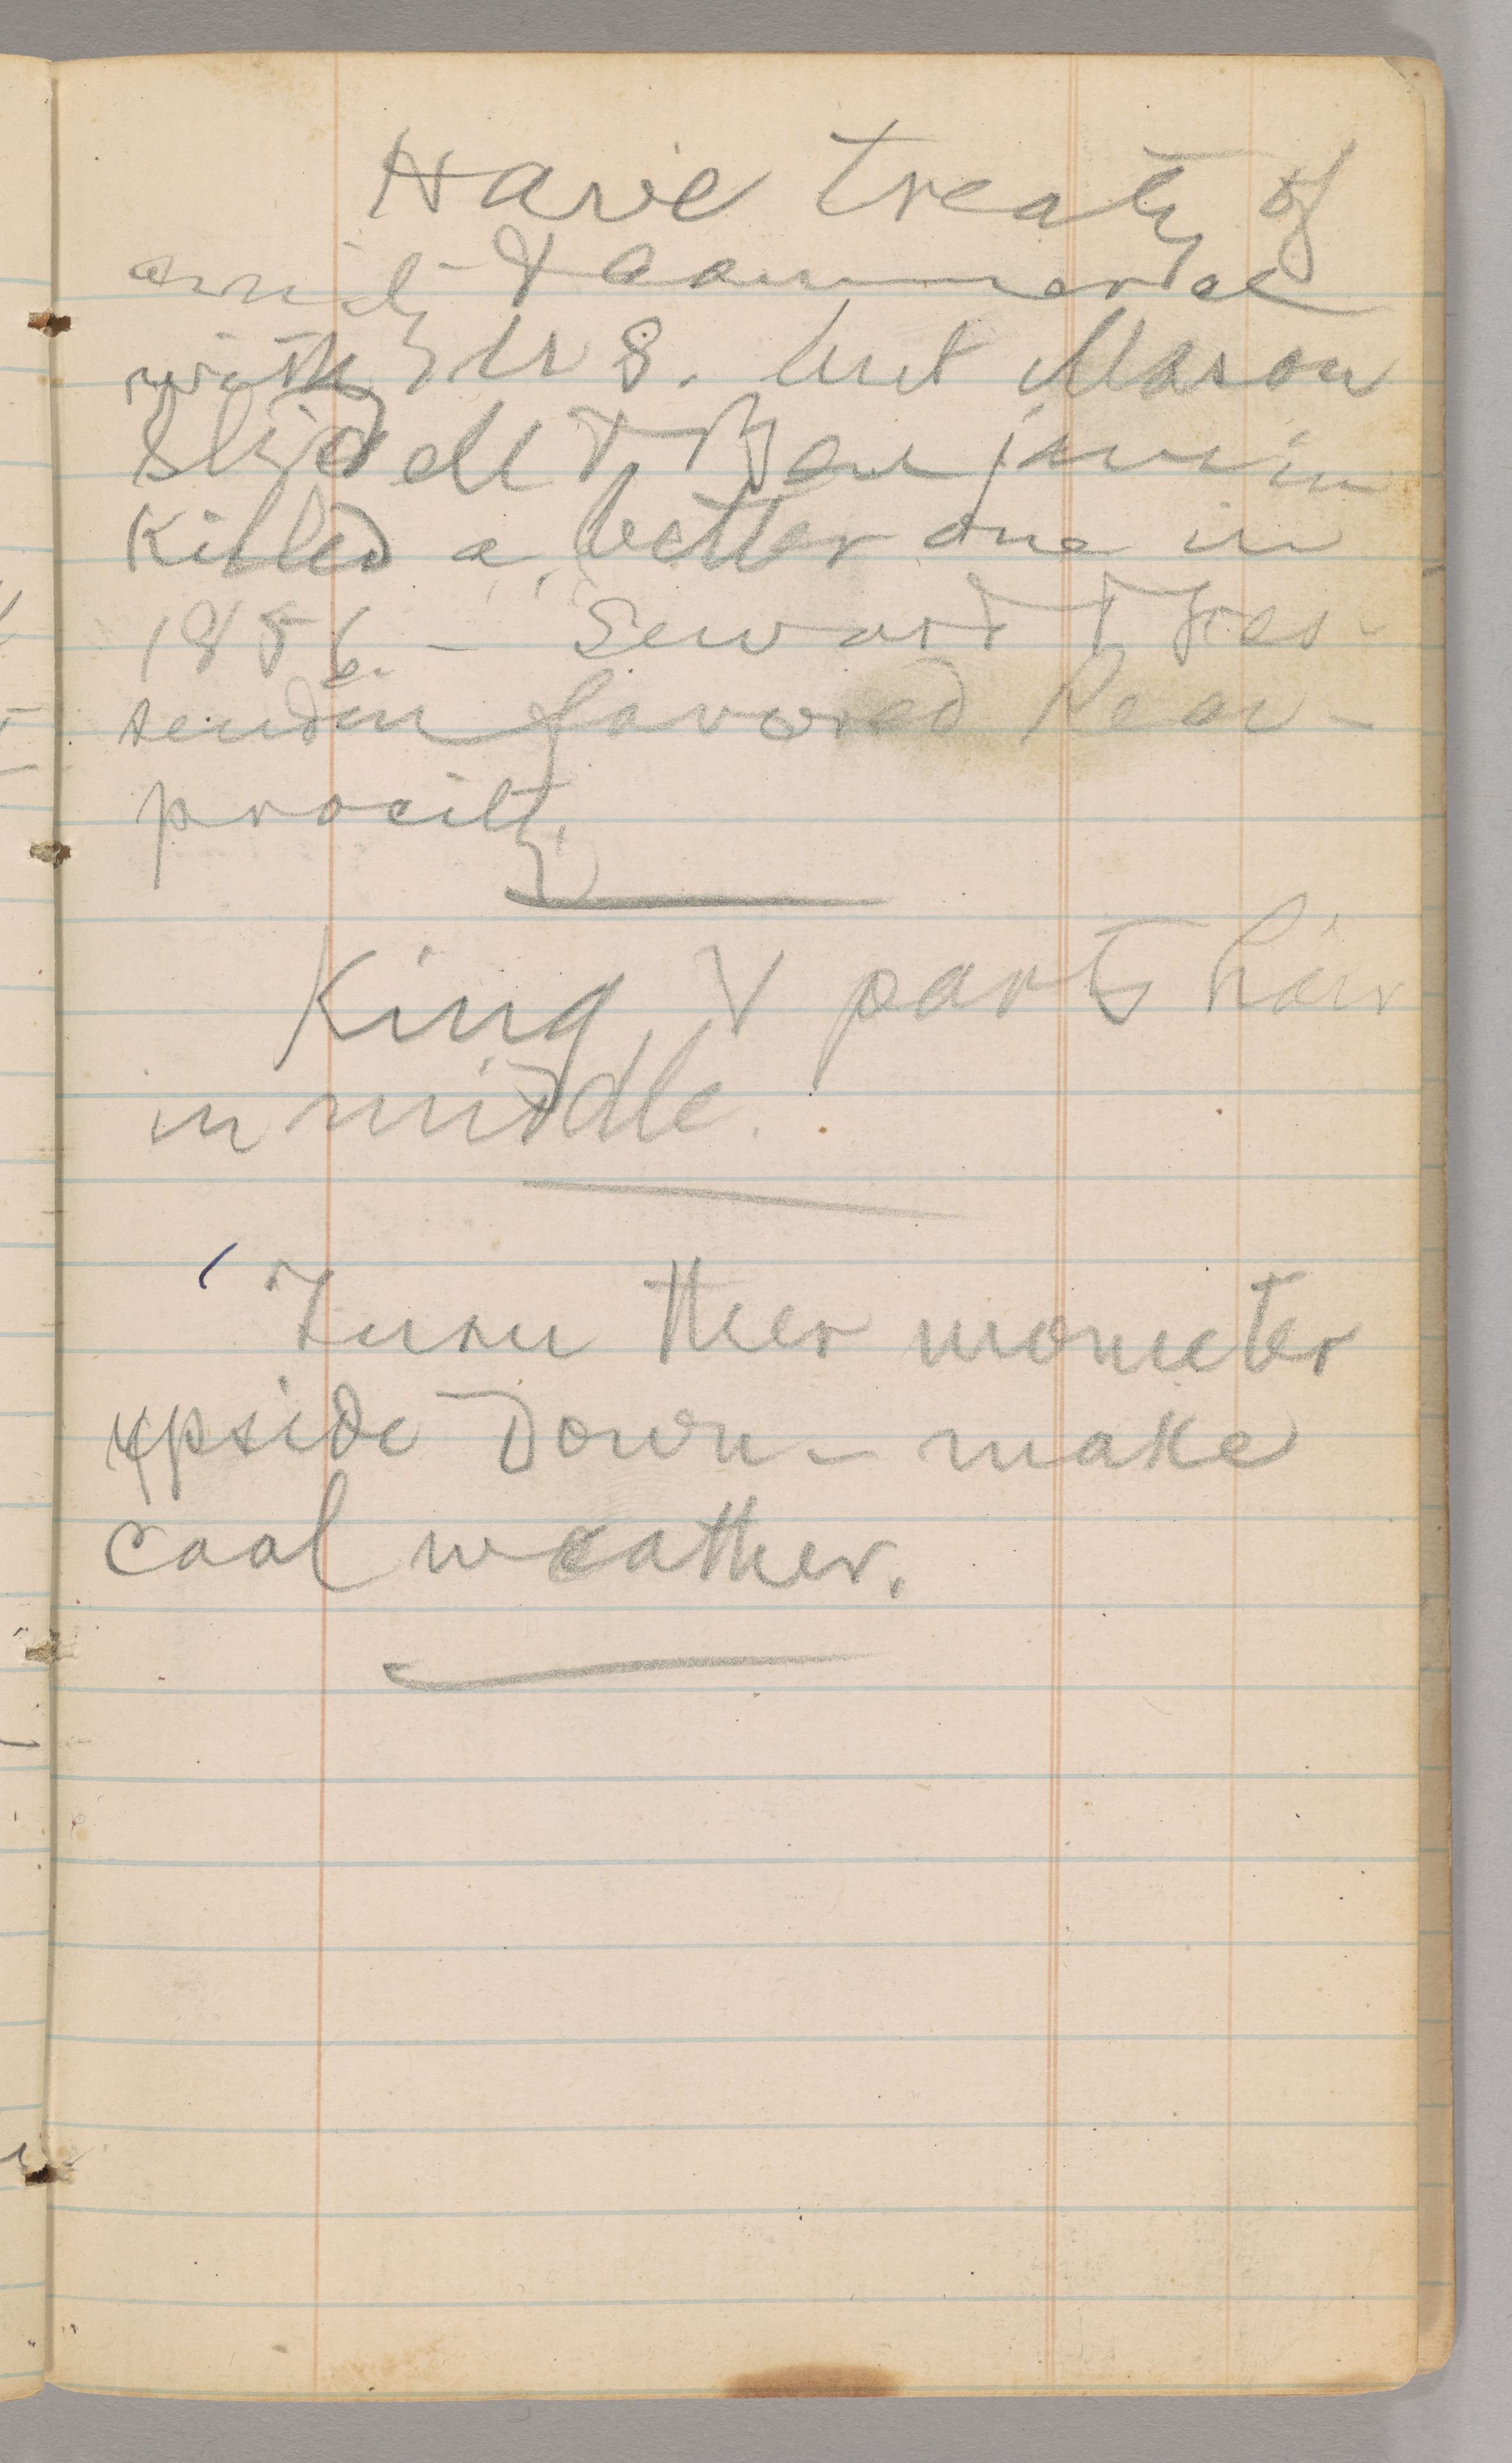 Have treaty of
amity & commerce
with U S. but Mason
Slidell & Benjamin
killed a better one in
1856 — Seward & Fes-
senden favored Rear-
procity.
King V parts hair
in middle.
Turn ther mometer
upside Down — make
cool weather.